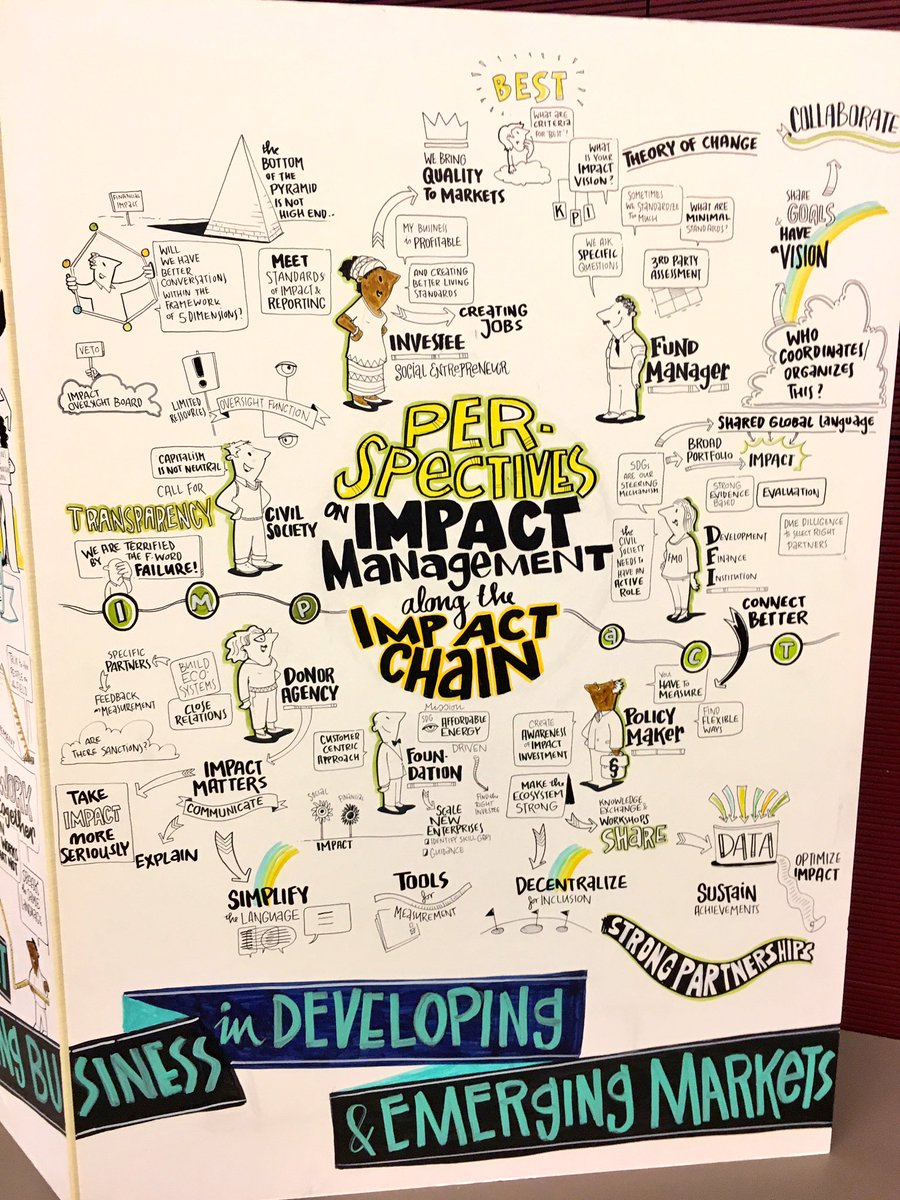 BEST
WHAT ARE
CRITERIA
FOR "BEST"?
COLLABORATE
the
BOTTOM
OF THE
PYRAMID
IS NOT
HIGH END..
WE BRING
QUALITY
TO MARKETS
WHAT
IS YOUR
IMPACT
VISION?
KPI
THEORY OF CHANGE
SOMETIMES
WE STANDARDIZE
TOO MUCH
WHAT ARE
MINIMAL
STANDARDS?
SHARE
GOALS
& HAVE
a VISION
FINANCIAL
IMPACT
WILL
WE HAVE
BETTER
CONVERSATIONS
WITHIN THE
FRAMEWORK
OF 5 DIMENSIONS?
MEET
STANDARDS
OF IMPACT &
REPORTING
MY BUSINESS
is PROFITABLE
AND CREATING
BETTER LIVING
STANDARDS
CREATING
JOBS
INVESTEE
SOCIAL ENTREPRENEUR
WE ASK
SPECIFIC
QUESTIONS
3RD PARTY
ASSESSMENT
FUND
MANAGER
WHO
COORDINATES/
ORGANIZES
THIS?
VETO
IMPACT
OVERSIGHT BOARD
!
LIMITED
RESOURCES
OVERSIGHT FUNCTION
CAPITALISM
IS NOT NEUTRAL
CALL FOR
TRANSPARENCY
CIVIL
SOCIETY
WE ARE TERRIFIED
BY THE F-WORD
FAILURE!
PER-
SPECTIVES
ON IMPACT
MANAGEMENT
along the
IMPACT
CHAIN
SHARED GLOBAL LANGUAGE
BROAD
PORTFOLIO
IMPACT
SDGs
ARE OUR
STEERING
MECHANISM
STRONG
EVIDENCE
BASED
EVALUATION
the
CIVIL SOCIETY
NEEDS TO
HAVE AN
ACTIVE
ROLE
FMO
DEVELOPMENT
FINANCE
INSTITUTION
DUE DILIGENCE
to SELECT RIGHT
PARTNERS
CONNECT
BETTER
I M P a C T
SPECIFIC
PARTNERS
BUILD
ECO-
SYSTEMS
FEEDBACK
on MEASUREMENT
CLOSE
RELATIONS
ARE
THERE SANCTIONS?
DONOR
AGENCY
IMPACT
MATTERS
COMMUNICATE
TAKE
IMPACT
MORE
SERIOUSLY
EXPLAIN
SIMPLIFY
the LANGUAGE
CUSTOMER
CENTRIC
APPROACH
Mission
SDG AFFORDABLE
ENERGY
DRIVEN
FOUN-
DATION
SOCIAL
FINANCIAL
IMPACT
FIND the
RIGHT
INVESTEE
SCALE
NEW
ENTERPRISES
IDENTIFY SKILL GAPS
GUIDANCE
TOOLS
for
MEASUREMENT
CREATE
AWARENESS
OF IMPACT
INVESTMENT
MAKE the
ECOSYSTEM
STRONG
YOU
HAVE TO
MEASURE
FIND
FLEXIBLE
WAYS
POLICY
MAKER
§
KNOWLEDGE
EXCHANGE &
WORKSHOPS
SHARE
DECENTRALIZE
for INCLUSION
DATA
OPTIMIZE
IMPACT
SUSTAIN
ACHIEVEMENTS
STRONG PARTNERSHIPS
in DEVELOPING
NG BUSINESS
& EMERGING MARKETS